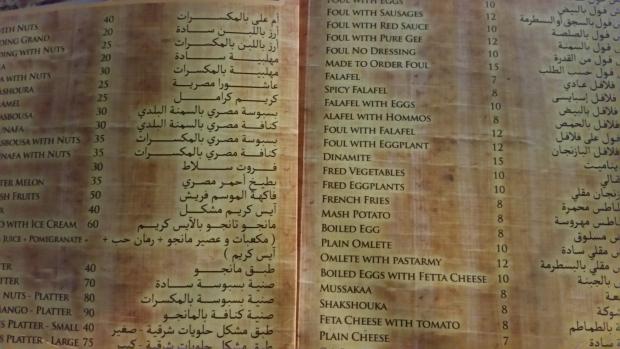 NUTS 40 أم على بالمكسرات
DING GRAND 20 أرز باللبن سادة
DING WITH NUTS 30 أرز باللبن بالمكسرات
20 مهلبية سادة
WITH NUTS 30 مهلبية بالمكسرات
ASHOURA 25 عاشورا مصرية
AMEL 25 كريم كرامل
ASBOUSA 30 بسبوسة مصري بالسمنة البلدي
UNAFA 30 كنافة مصري بالسمنة البلدي
ASBOUSA WITH NUTS 35 بسبوسة مصري بالمكسرات
UNAFA WITH NUTS 35 كنافة مصري بالمكسرات
30 فروت سلاط
TER MELON 35 بطيخ أحمر مصري
SH FRUITS 50 فاكهة الموسم فريش
40 آيس كريم مشكل
WITH ICE CREAM 60 مانجو تانجو بالآيس كريم
JUICE + POMIGRANATE + ( مكعبات و عصير مانجو + رمان حب +
آيس كريم )
TER 40 طبق مانجو
TTER 70 صنية بسبوسة سادة
NUTS - PLATTER 80 صنية بسبوسة بالمكسرات
MANGO - PLATTER 90 صنية كنافة بالمانجو
PLATTER - SMALL 40 طبق مشكل حلويات شرقية - صغير
PLATTER - LARGE 75 طبق مشكل حلويات شرقية - كبير
FOUL WITH EGGS 10 فول بالبيض
FOUL WITH SAUSAGES 12 فول بالسجق أو البسطرمة
FOUL WITH RED SAUCE 10 فول بالصلصة
FOUL WITH PURE GEF 12 فول بالسمنة
FOUL NO DRESSING 10 فول من القدرة
MADE TO ORDER FOUL 15 فول حسب الطلب
FALAFEL 7 فلافل عادي
SPICY FALAFEL 8 فلافل
FALAFEL WITH EGGS 10 فلافل بالبيض
ALAFEL WITH HOMMOS 8 فلافل بالحمص
FOUL WITH FALAFEL 12 فول على فلافل
FOUL WITH EGGPLANT 12 البازنجان
DINAMITE 15
FRED VEGETABLES 10
FRED EGGPLANTS 10 مقلي
FRENCH FRIES 8 محمرة
MASH POTATO 8 مهروسة
BOILED EGG 8 مسلوق
PLAIN OMLETE 8 مقلي سادة
OMLETE WITH PASTARMY 12 مقلي بالبسطرمة
BOILED EGGS WITH FETTA CHEESE 10 بالجبنة
MUSSAKAA 8
SHAKSHOUKA 8
FETA CHEESE WITH TOMATO 8 بالطماطم
PLAIN CHEESE 7 سادة